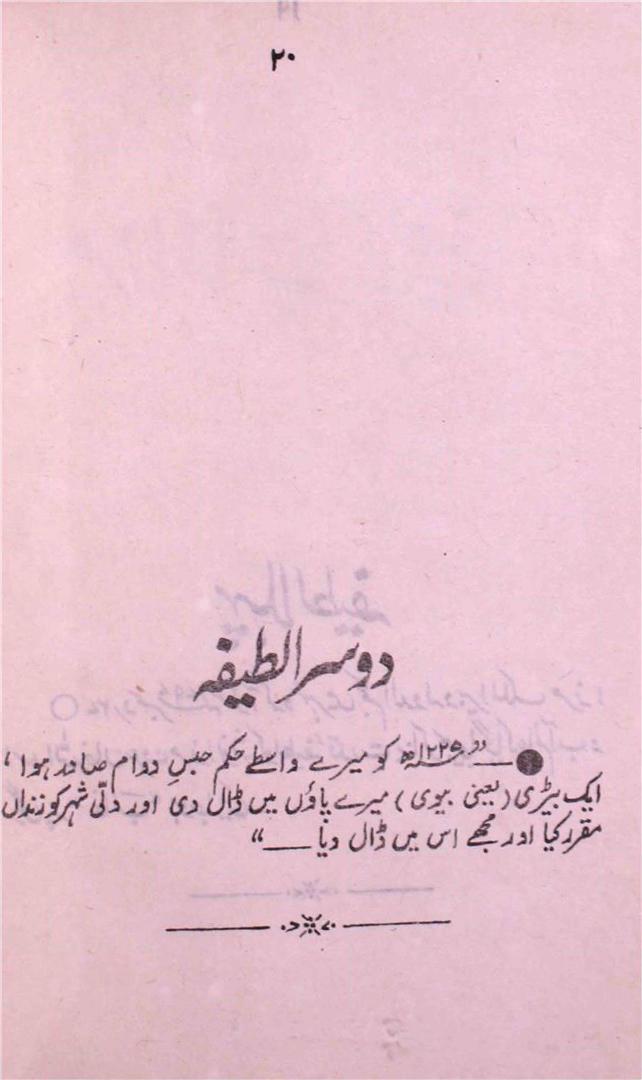 ۲۰
دوسرا لطیفہ
● ــــ "۱۲۲۵ھ کو میرے واسطے حکم حبسِ دوام صادر ہوا،
ایک بیڑی (یعنی بیوی) میرے پاؤں میں ڈال دی اور دلّی شہر کو زنداں
مقرر کیا اور مجھے اس میں ڈال دیا ــــ"